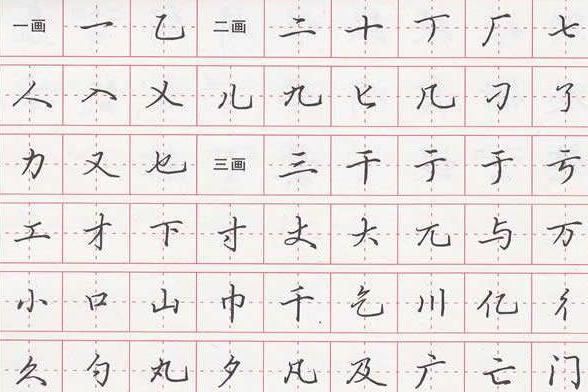 一画 一 乙 二画 二 十 丁 厂 七
人 入 乂 儿 九 匕 几 刁 了
力 又 也 三画 三 干 于 于 亏
工 才 下 寸 丈 大 兀 与 万
小 口 山 巾 千 乞 川 亿 彳
久 勺 丸 夕 凡 及 广 亡 门